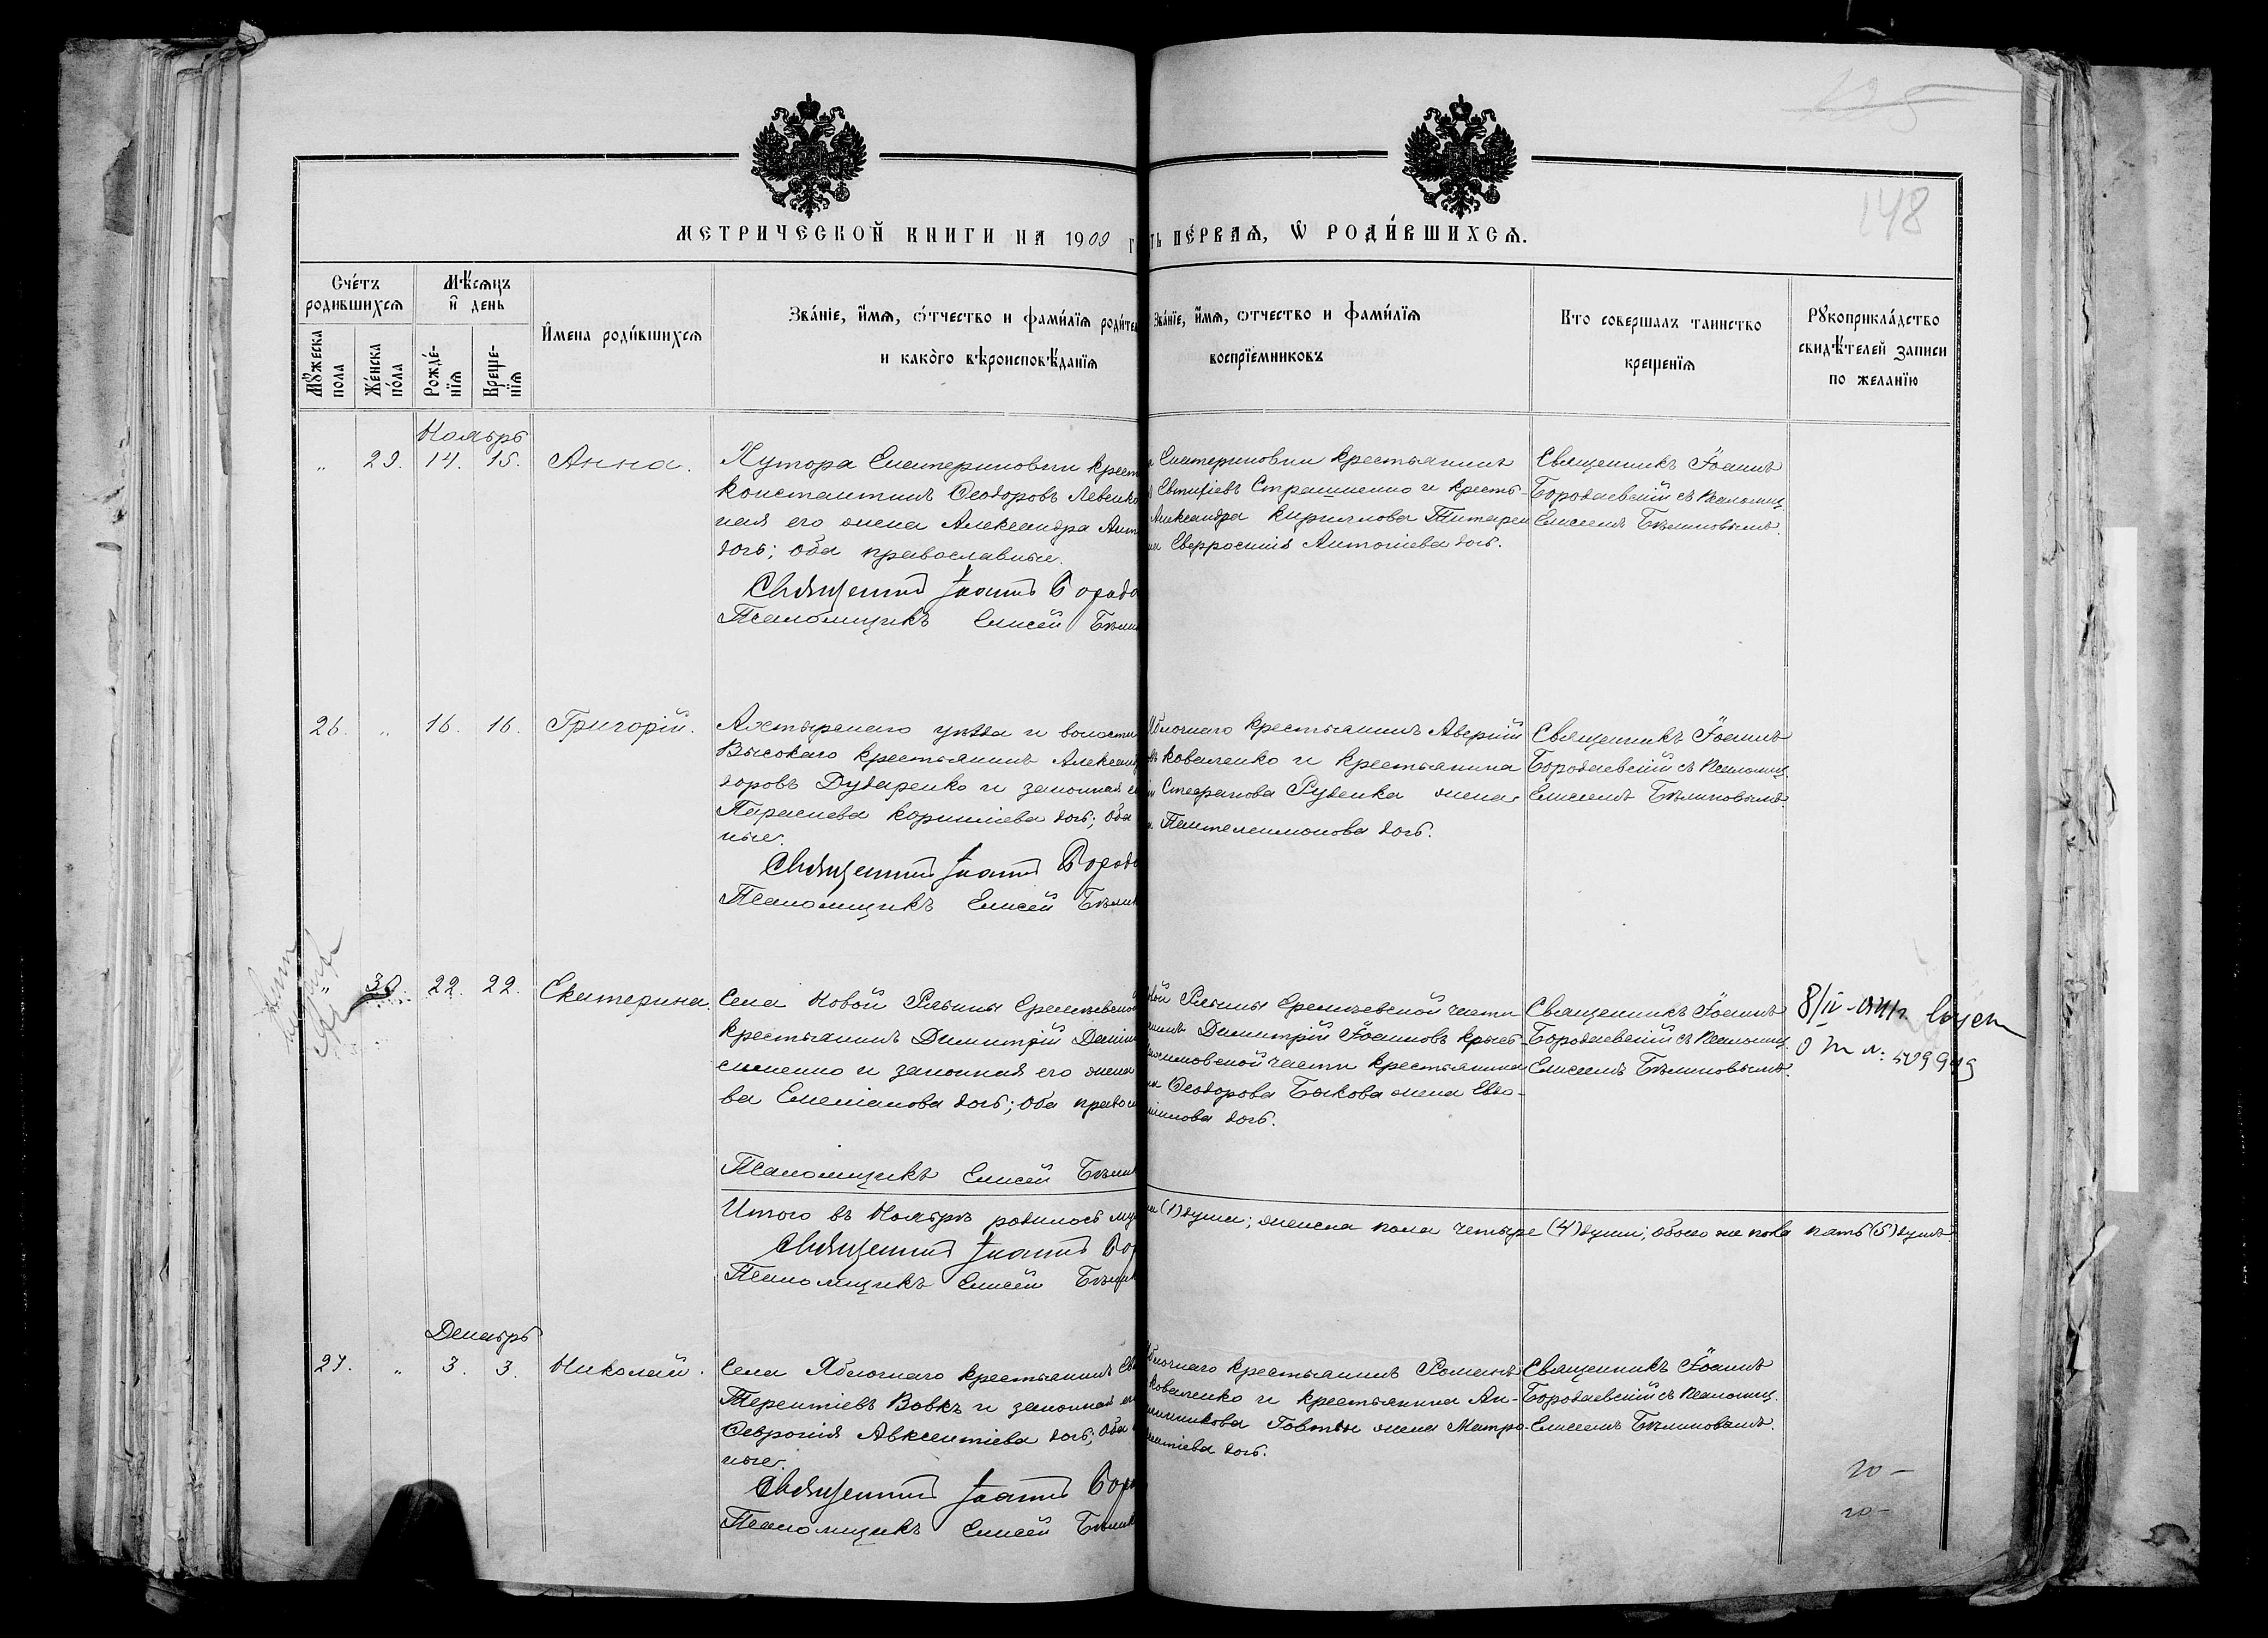 148
МЕТРИЧЕСКОЙ КНИГИ НА 1909 г
ть ПЕ́РВАѦ, Ѡ҆ РОДИ́ВШИХСѦ.
Сче́тъ родившихсѧ
Мѣ́сѧцъ и҆ день
И҆мена роди́вшихсѧ
Зва́нїе, и҆́мѧ, ѻ҆́тчество и фами́лїѧ роди́те
и како̀го вѣроисповѣ́данїѧ
Зва́нїе, и҆́мѧ, ѻтчество и фами́лїѧ
воспрїе́мниковъ
Кто совершалъ таинство
крещенїѧ
Рꙋкоприкла́дство
свидѣ́телей записи
по желанїю
Мꙋ́жеска пола
Же́нска по́ла
Рожде́-нїѧ
Креще-нїѧ
Ноябрь
" 29. 14. 15. Анна.
Хутора Екатериновки крест
Константинъ Ѳеодоровъ Левенко
ная его жена Александра Ант
дочь; оба православные.
Священникъ Іоаннъ Бородо
Псаломщикъ Елисей Бѣли
Екатериновки крестьянинъ
Евтифіевъ Страшненко и кресть-
Александра Кириллова Титарен
Евфросинія Антоніева дочь.
Священникъ Іоаннъ
Бородаевскій съ Псаломщ.
Елисеемъ Бѣлиновымъ.
26. " 16. 16. Григорій.
Ахтырскаго уѣзда и волости
Высокаго крестьянинъ Александ
доровъ Дударенко и законная е
Параскева Корниліева дочь; оба
ные.
Священникъ Іоаннъ Бородо
Псаломщикъ Елисей Бѣлин
Яблочнаго крестьянинъ Аверкій
Коваленко и крестьянина
Стефанова Руденка жена
Пантелеимонова дочь.
Священникъ Іоаннъ
Бородаевскій съ Псаломщ.
Елисеемъ Бѣлиновымъ.
" 30 22. 22. Екатерина.
Села Новой Рябины Еремѣевской
крестьянинъ Димитрій Дани
сименко и законная его жена
ва Емеліанова дочь; оба правос
Псаломщикъ Елисей Бѣлин
вой Рябины Еремѣевской части
Димитрій Іоанновъ крест-
имовской части крестьянина
Ѳеодорова Быкова жена Евдо-
дочь.
Священникъ Іоаннъ
Бородаевскій съ Псаломщ.
Елисеемъ Бѣлиновымъ.
Итого въ Ноябрѣ родилось муж
(1) душа; женска пола четыре (4) души; обоего же пола пять (5) душъ.
Священникъ Іоаннъ Бор
Псаломщикъ Елисей Бѣлин
Декабрь
27. " 3. 3. Николай.
Села Яблочнаго крестьянинъ Ев
Терентіевъ Вовкъ и законная ег
Ѳевронія Авксентіева дочь; оба
ные.
Священникъ Іоаннъ Боро
Псаломщикъ Елисей Бѣлин
блочнаго крестьянинъ Романъ
Коваленко и крестьянина Ан-
Говтвы жена Матро-
ентіева дочь.
Священникъ Іоаннъ
Бородаевскій съ Псаломщ.
Елисеемъ Бѣлиновымъ.
20 -
20 -